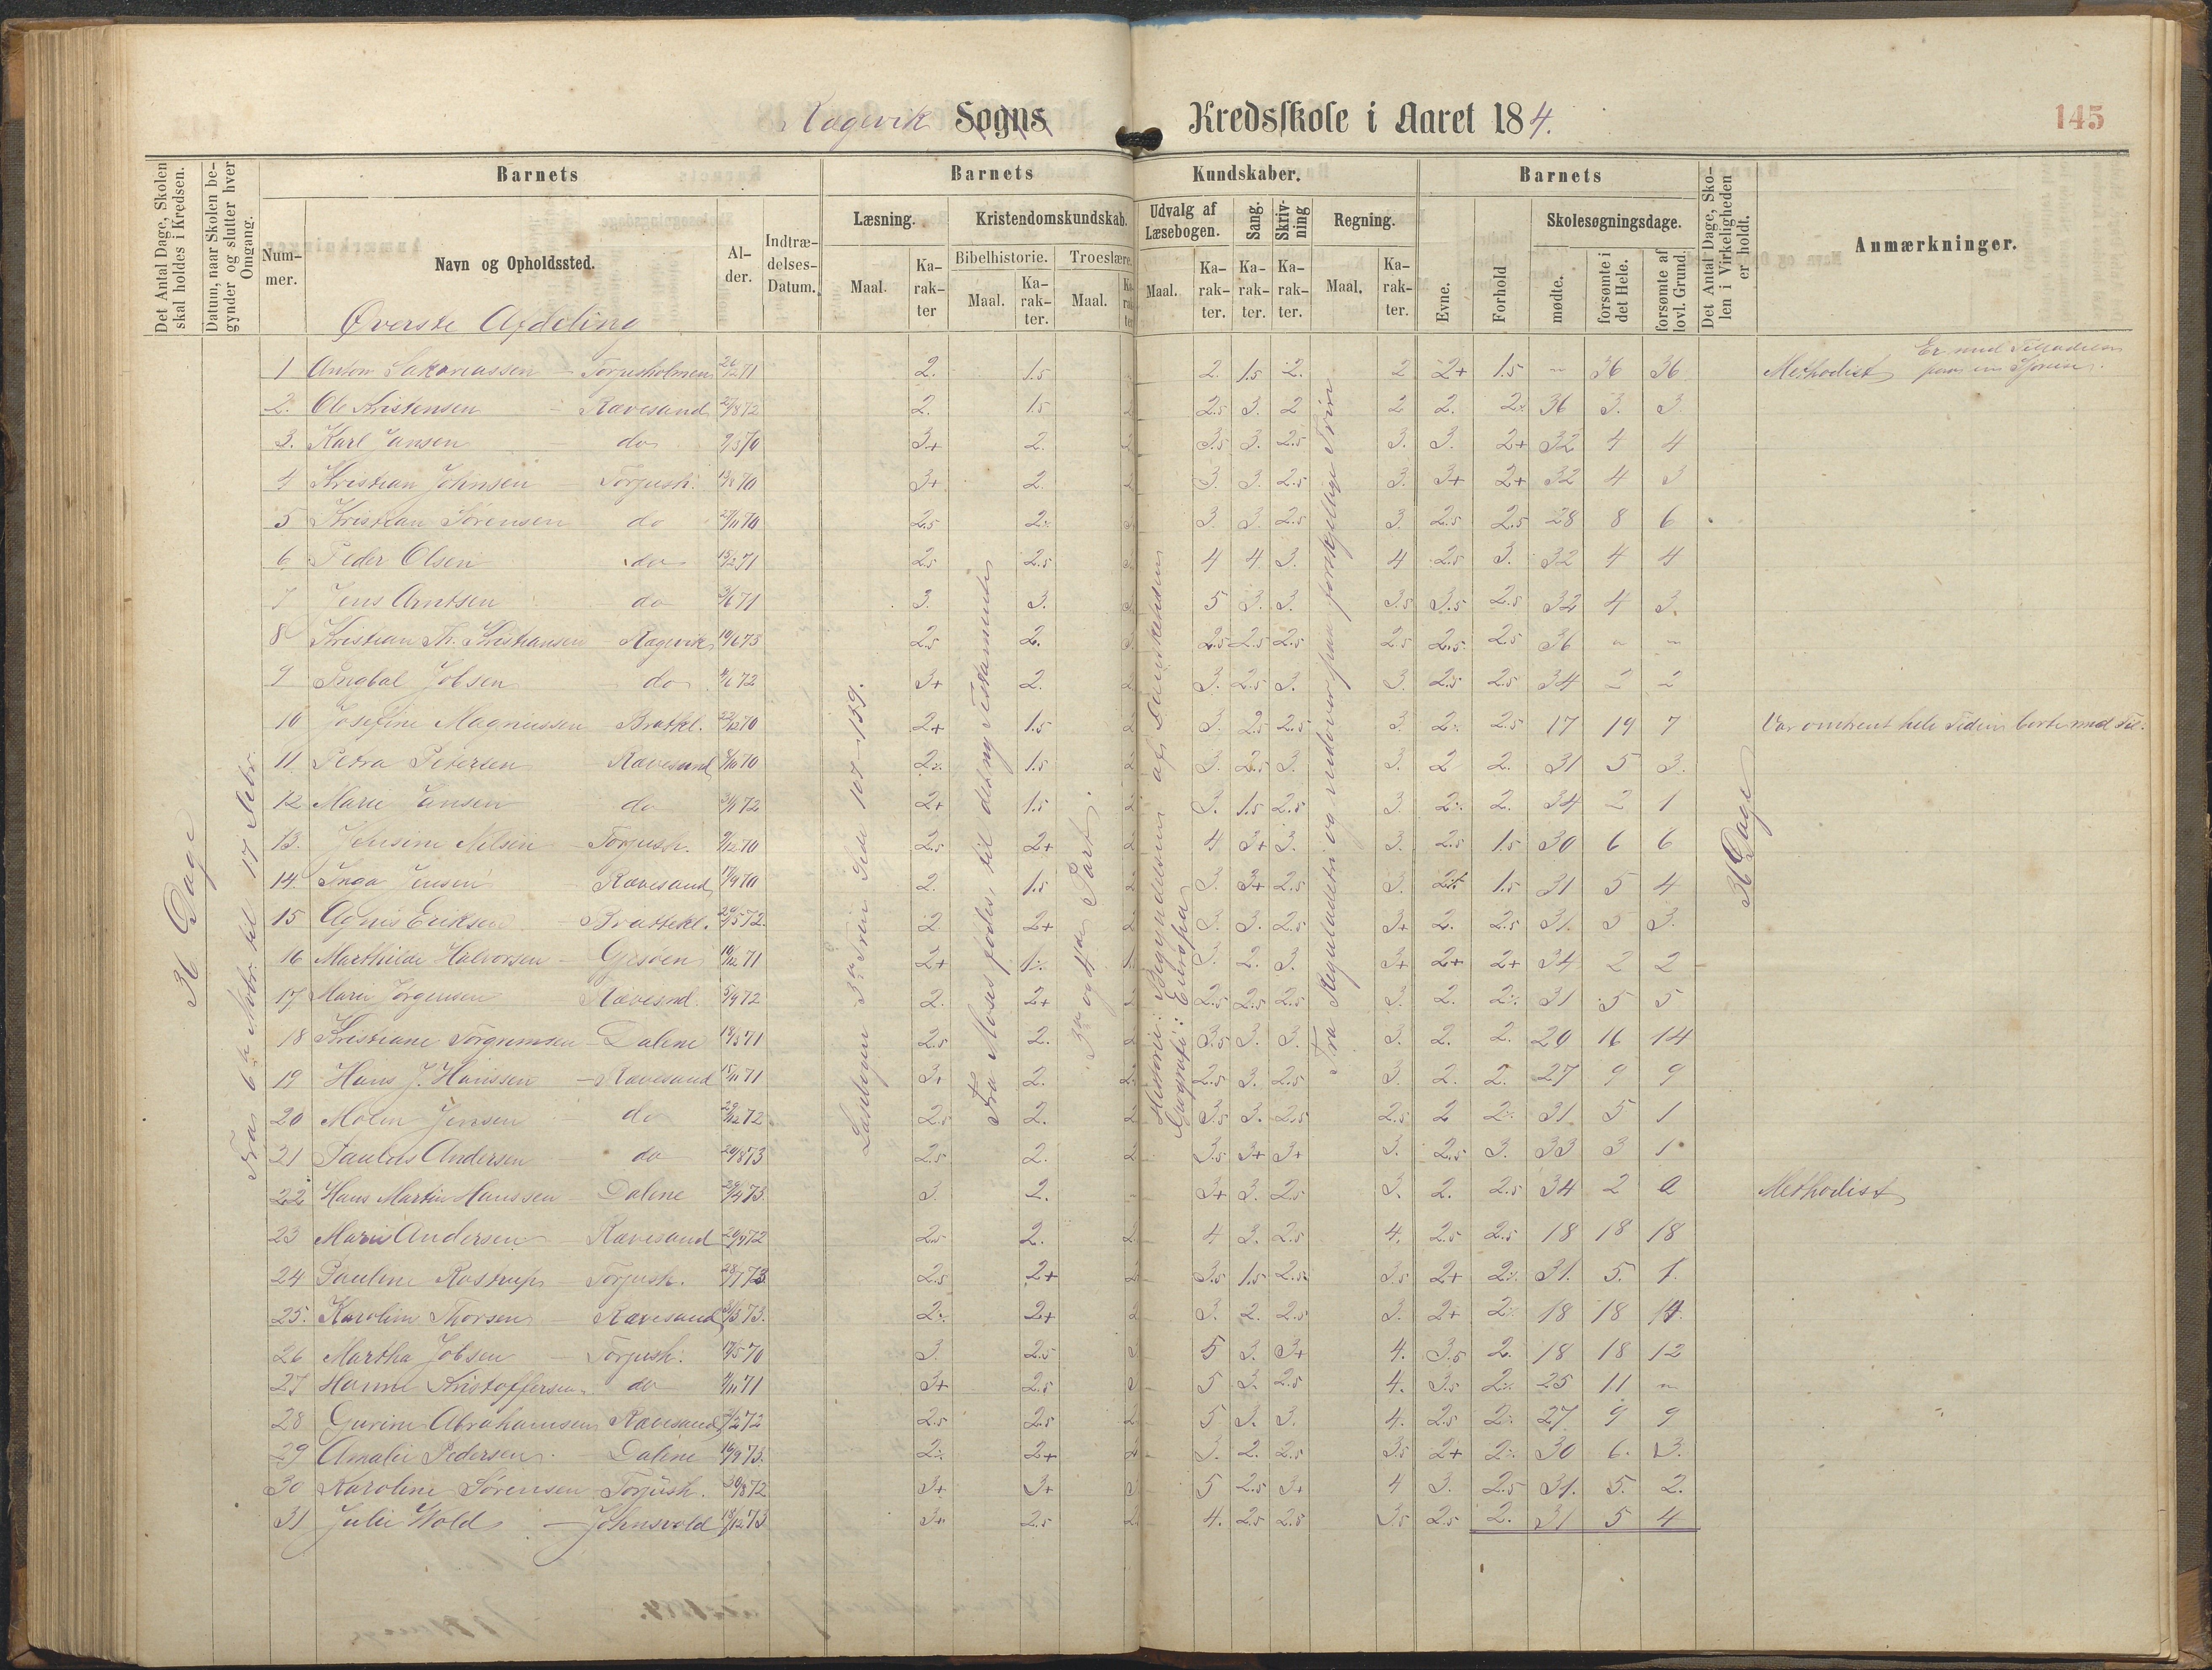 Kagevik Sogns Kredsskole i Aaret 184. 145
Det Antal Dage, Skolen skal holdes i Kredsen.
Datum, naar Skolen begynder og slutter hver Omgang.
Barnets
Nummer.
Navn og Opholdssted.
Alder.
Indtrædelses-Datum.
Barnets Kundskaber.
Læsning. Kristendomskundskab. Udvalg af Læsebogen. Sang. Skrivning Regning.
Bibelhistorie. Troeslære.
Maal. Karakter Maal. Karakter. Maal. Karakter Maal. Karakter. Karakter. Karakter. Maal. Karakter.
Barnets
Evne. Forhold Skolesøgningsdage.
mødte. forsømte i det Hele. forsømte af lovl. Grund.
Det Antal Dage, Skolen i Virkeligheden er holdt.
Anmærkninger.
Øverste Afdeling
36 Dage
Fra 6te Novbr. til 17
Læsebogen 3die Trin Side 107-159.
Fra Moses fødes til det ny Testamente
3die og 4de Part.
Geografi: Europa
Fra Reguladetri og udover paa forskjellige Trin
36 Dage
1 Anton Sakariassen - Torjusholmen 2. 1.5 2. 1.5 2. 2 2+ 1.5 " 36 36 Methodist
2. Ole Kristensen - Ravesand 27/8 72 2. 1.5 2.5 3. 2 2 2. 2÷ 36 3. 3.
3. Karl Jansen do 9/3 70 3+ 2. 3.5 3. 2.5 3. 3. 2+ 32 4 4
4 Kristian Johnsen - Torjush. 3+ 2. 3. 3. 2.5 3. 3+ 2+ 32 4 3
5 Kristian Sørensen do 27/11 70 2.5 2÷ 3. 3. 2.5 3. 2.5 2.5 28 8 6
6 Peder Olsen do 15/2 71 2.5 2.5 4 4. 3. 4 2.5 3. 32 4 4
7 Jens Arntsen do 3. 3. 5 3. 3. 3.5 3.5 2.5 32 4 3.
8 Kristian Th. Kristiansen - Kagevik 19/6 73 2.5 2. 2.5 2.5 2.5 2.5 2.5 2.5 36 " "
9 Ingbal Jobsen do 3+ 2. 3. 2.5 3. 3. 2.5 2.5 34 2 2
10 Josefine Magnussen - Brattkl. 2+ 1.5 3. 2.5 2.5 3. 2÷ 2.5 17 19 7 Var omtrent hele Tiden borte med Til.
11. Petra Petersen Ravesand 2÷ 1.5 3. 2.5 3. 3. 2 2. 31 5 3.
12 Marie Jansen do 2+ 1.5 3. 1.5 2.5 3. 2÷ 2. 34 2 1
13. Jensine Nilsen - Torjush. 2.5 2+ 4 3+ 3. 3. 2.5 1.5 30 6 6
14. Inga Jensen - Ravesand 17/9 70 2. 1.5 3. 3+ 2.5 3. 1.5 31 5 4
15 Agnis Eriksen - Brattekl. 2. 2+ 3. 3. 2.5 3+ 2. 2.5 31. 5 3.
16 Marthilde Halvorsen - Gjesøen 2+ 1÷ 3. 2. 3. 3+ 2+ 2+ 34 2 2
17 Marie Jørgensen Ravesnd. 5/9 72 2. 2+ 2.5 2.5 2.5 3. 2. 2÷ 31 5 5
18 Kristiane Torgrimsen - Dalene 2.5 2. 3.5 3. 3. 3. 2. 2. 20 16 14
19 Hans J. Hanssen - Ravesand 15/11 71 3+ 2. 2.5 3. 2.5 3. 2. 2. 27 9 9
20 Molin Jensen - do 2.5 2. 3.5 3. 2.5 2.5 2 2÷ 31. 5 1
21 Paulus Andersen - do 2.5 2. 3.5 3+ 3+ 3. 2.5 3. 33 3 1
22 Hans Martin Hanssen - Dalene 3. 2. 3+ 3. 2.5 3. 2. 2.5 34 2 2 Methodist
23 Marie Andersen - Ravesand 2.5 2. 4 3. 2.5 4. 2.5 2.5 18 18 18
24 Pauline Rostrup - Torjush. 28/7 73 2.5 2+ 3.5 1.5 2.5 3.5 2+ 2÷ 31. 5. 1.
25. Karoline Thorsen - Ravesand 2÷ 2+ 3. 2. 2.5 3. 2+ 2÷ 18 18 14
26 Martha Jobsen - Torjush. 3. 2.5 5 3. 3+ 4. 3.5 2. 18 18 12
27 Hanne Kristoffersen do 3+ 2.5 5 3. 2.5 4. 3.5 2÷ 25 11 "
28 Gurine Abrahamsen Ravesand 2.5 2.5 5 3. 3. 4. 2.5 2÷ 27 9 9
29 Amalie Pedersen - Dalene 2÷ 2+ 3. 2. 2.5 3.5 2+ 2÷ 30 6. 3.
30 Karoline Sørensen Torjush. 30/8 72 3+ 3+ 5 2.5 3+ 4 3. 2.5 31. 5. 2.
31 Julie Wold - Johnsvold 3+ 2.5 4. 2.5 2.5 3.5 2.5 2. 31 5 4